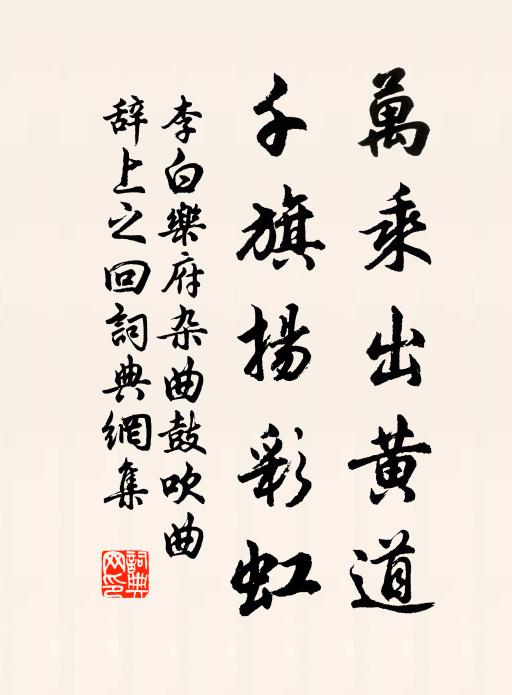 萬乘出黄道
千旗揚彩虹
李白樂府杂曲鼓吹曲
辞上之回詞典網集
詞典网印